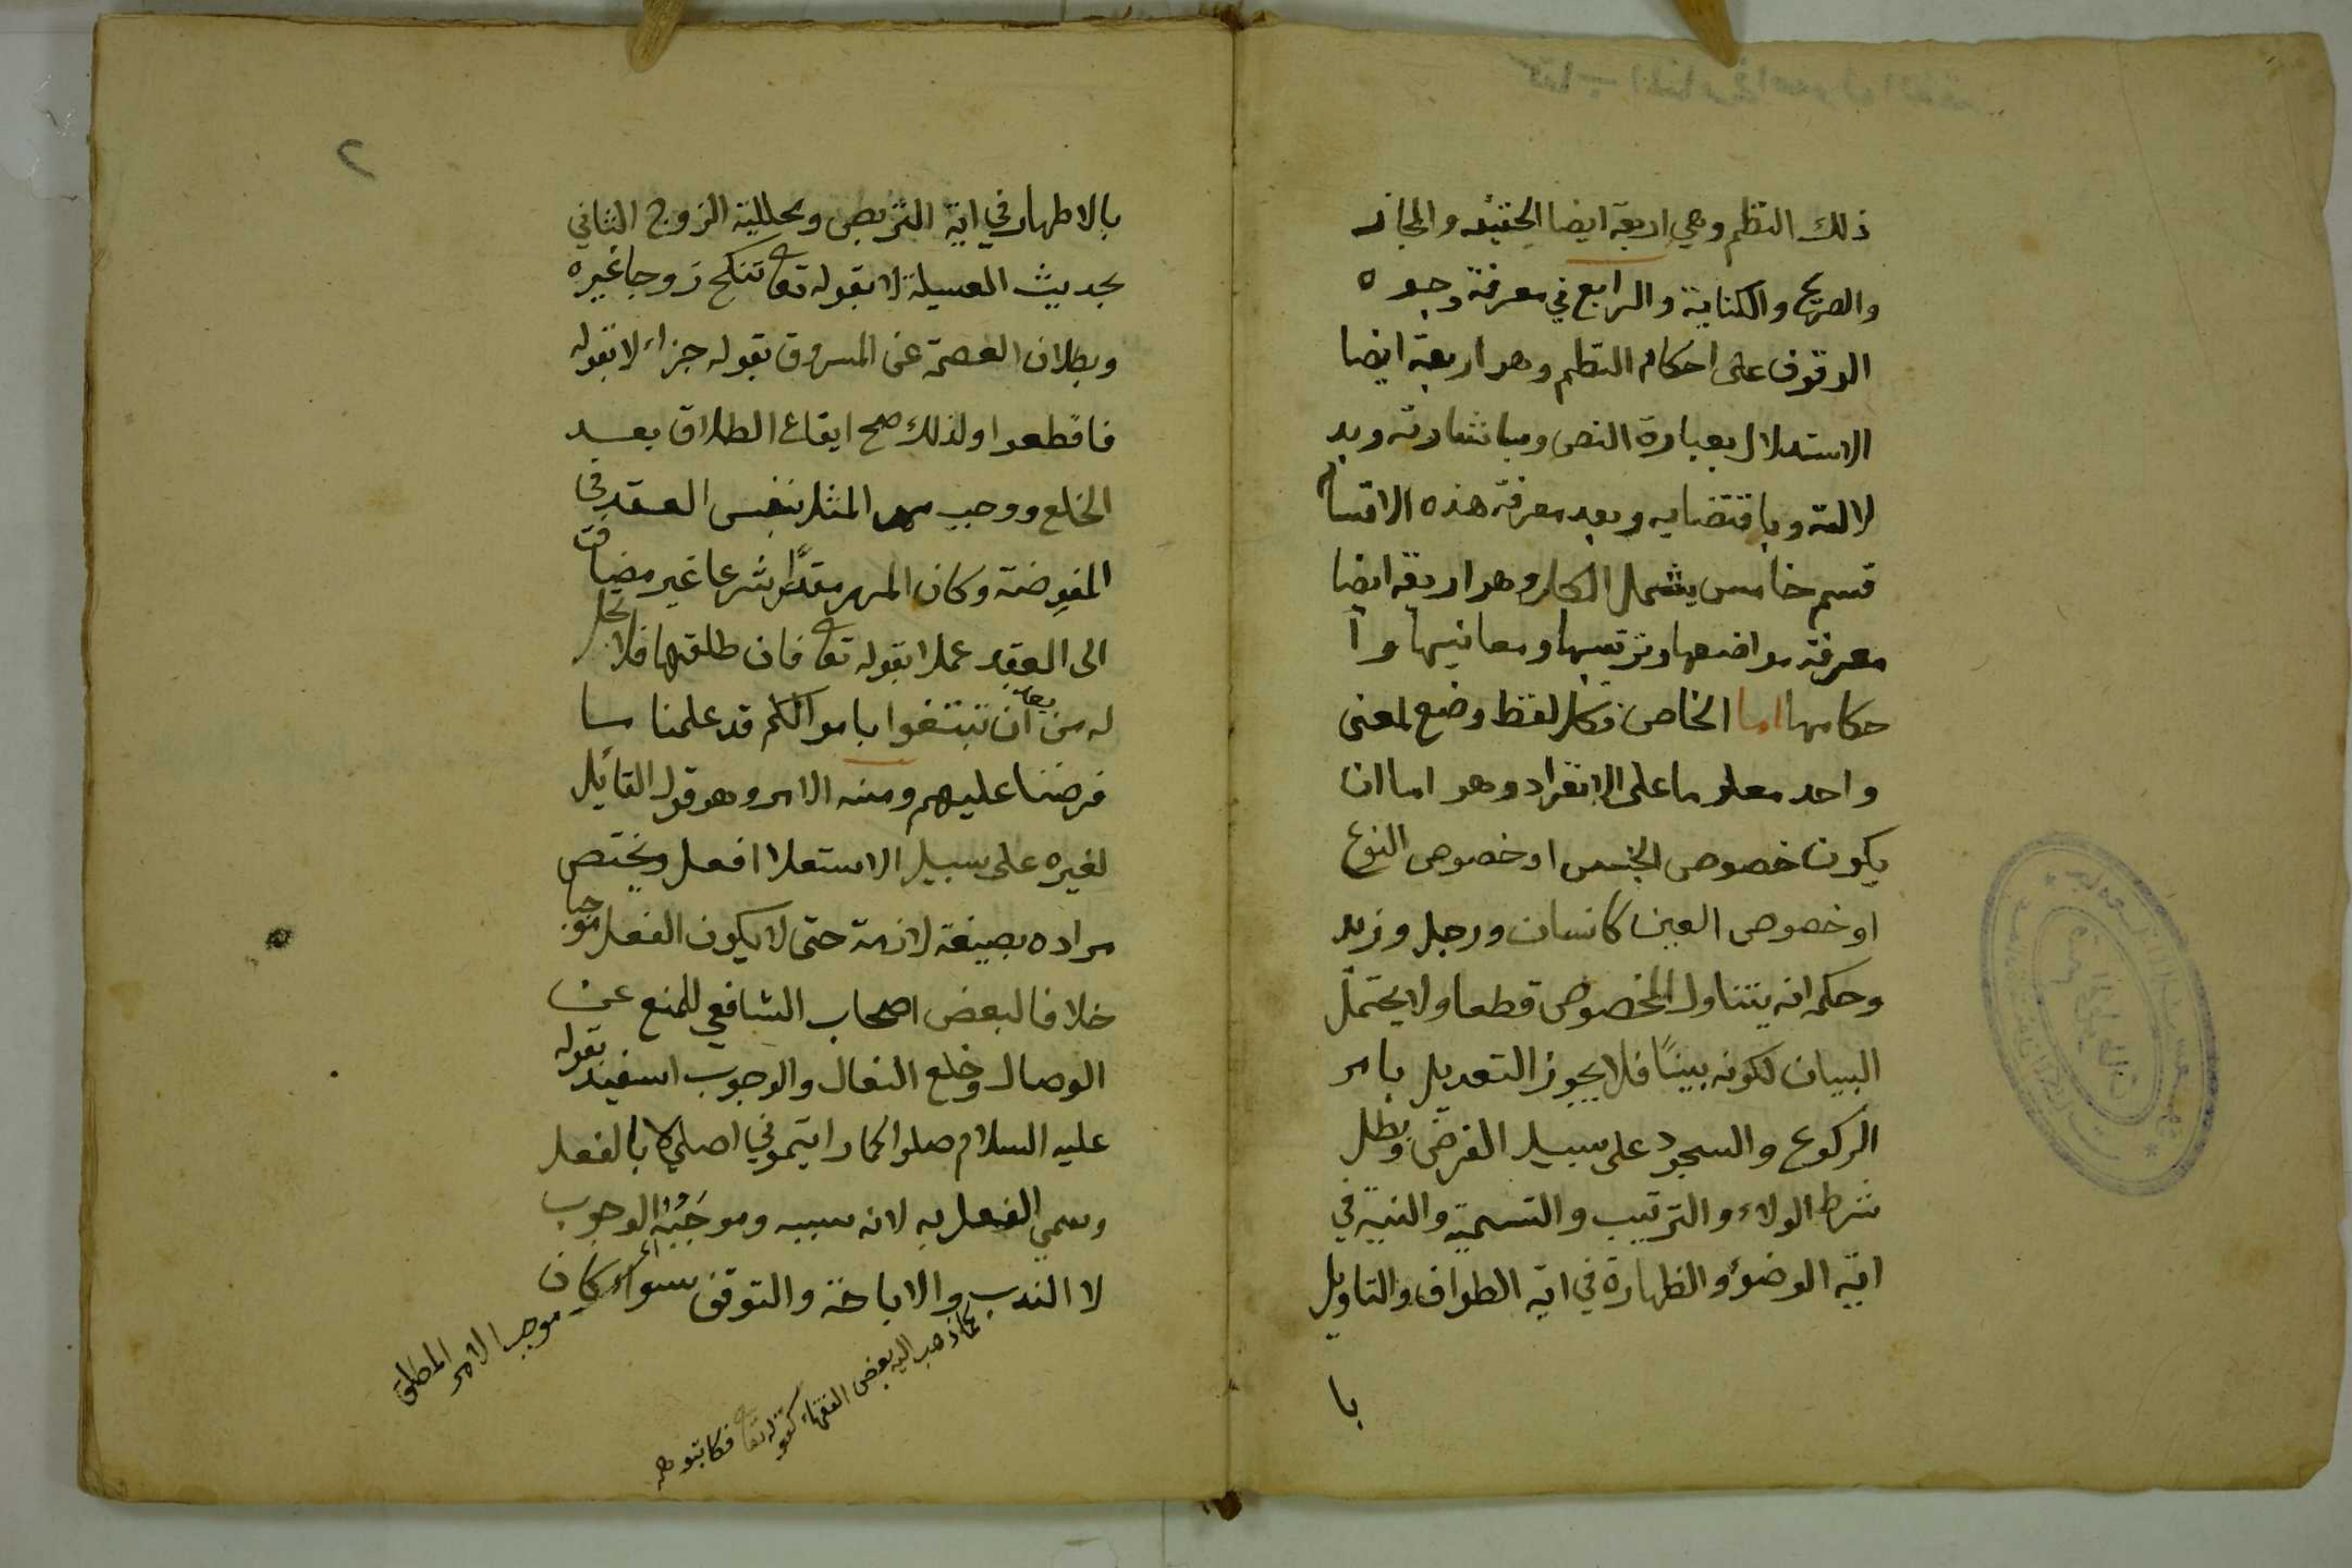 ذلك النظم وهي اربعة ايضا الحقيقه والمجاز
والصريح والكناية والرابع في معرفة وجوه
الوقوف على احكام النظم وهو اربعة ايضا
الاستدلال بعبارة النص وباشارته وبد
لالته وباقتضايه وبعد معرفة هذه الاقسام
قسم خامس يشمل الكل وهو اربعة ايضا
معرفة مواضعها وترتيبها ومعانيها وا
حكامها اما الخاص فكل لفظ وضع لمعنى
واحد معلوما على الانفراد وهو اما ان
يكون خصوص الجنس او خصوص النوع
او خصوص العين كانسان ورجل وزيد
وحكمه انه يتناول المخصوص قطعا ولا يحتمل
البيان لكونه بينًا فلا يجوز التعديل بامر
الركوع والسجود على سبيل الفرض وبطل
شرط الولاء والترتيب والتسمية والنية في
اية الوضوء والطهارة في اية الطواف والتاويل
با
٢
بالاطهار في اية التربص ومحللية الزوج الثاني
بحديث العسيلة لا بقوله تعا تنكح زوجا غيره
وبطلان العصمة عن المسروق بقوله جزاء لا بقوله
فاقطعوا ولذلك صح ايقاع الطلاق بعد
الخلع ووجب مهر المثل بنفس العقد في
المفوضة وكان المهر مقدرًا شرعا غير مضاف
الى العقد عملا بقوله تعا فان طلقها فلا تحل
له من بعد ان تبتغوا باموالكم قد علمنا ما
فرضنا عليهم ومنه الامر وهو قول القائل
لغيره على سبيل الاستعلا افعل ويختص
مراده بصيغة لازمة حتى لا يكون الفعل موجبا
خلافا لبعض اصحاب الشافعي للمنع عن
الوصال وخلع النعال والوجوب استفيد بقوله
عليه السلام صلوا كما رايتموني اصلي لا بالفعل
وسمي الفعل به لانه سببه وموجَبُه الوجوب
لا الندب والاباحة والتوقف سواء كان
موجب الامر المطلق
كما ذهب اليه بعض الفقهاء كقوله تعا فكاتبوهم